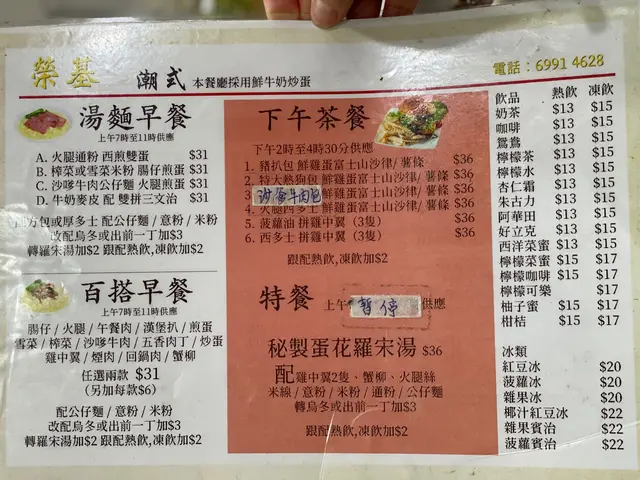 榮基 潮式 本餐廳採用鮮牛奶炒蛋
電話：6991 4628
湯麵早餐
上午7時至11時供應
A. 火腿通粉 西煎雙蛋 $31
B. 榨菜或雪菜米粉 腸仔煎蛋 $31
C. 沙嗲牛肉公仔麵 火腿煎蛋 $31
D. 牛奶麥皮 配 雙拼三文治 $31
方包或厚多士 配公仔麵 / 意粉 / 米粉
改配烏冬或出前一丁加$3
轉羅宋湯加$2 跟配熱飲,凍飲加$2
百搭早餐
上午7時至11時供應
腸仔 / 火腿 / 午餐肉 / 漢堡扒 / 煎蛋
雪菜 / 榨菜 / 沙嗲牛肉 / 五香肉丁 / 炒蛋
雞中翼 / 煙肉 / 回鍋肉 / 蟹柳
任選兩款 $31
(另加每款$6)
配公仔麵 / 意粉 / 米粉
改配烏冬或出前一丁加$3
轉羅宋湯加$2 跟配熱飲,凍飲加$2
下午茶餐
下午2時至4時30分供應
1. 豬扒包 鮮雞蛋富士山沙律/ 薯條 $36
2. 特大熱狗包 鮮雞蛋富士山沙律/ 薯條 $36
沙嗲牛肉包 鮮雞蛋富士山沙律/ 薯條 $36
4. 火腿西多士 鮮雞蛋富士山沙律/ 薯條 $36
5. 菠蘿油 拼雞中翼 (3隻) $36
6. 西多士 拼雞中翼 (3隻) $36
跟配熱飲,凍飲加$2
特餐 上午 暫停 供應
秘製蛋花羅宋湯 $36
配雞中翼2隻、蟹柳、火腿絲
米線 / 意粉 / 米粉 / 通粉 / 公仔麵
轉烏冬或出前一丁加$3
跟配熱飲,凍飲加$2
飲品 熱飲 凍飲
奶茶 $13 $15
咖啡 $13 $15
鴛鴦 $13 $15
檸檬茶 $13 $15
檸檬水 $13 $15
杏仁霜 $13 $15
朱古力 $13 $15
阿華田 $13 $15
好立克 $13 $15
西洋菜蜜 $13 $15
檸檬菜蜜 $15 $17
檸檬咖啡 $15 $17
檸檬可樂 $17
柚子蜜 $15 $17
柑桔 $15 $17
冰類
紅豆冰 $20
菠蘿冰 $20
雜果冰 $20
椰汁紅豆冰 $22
雜果賓治 $22
菠蘿賓治 $22